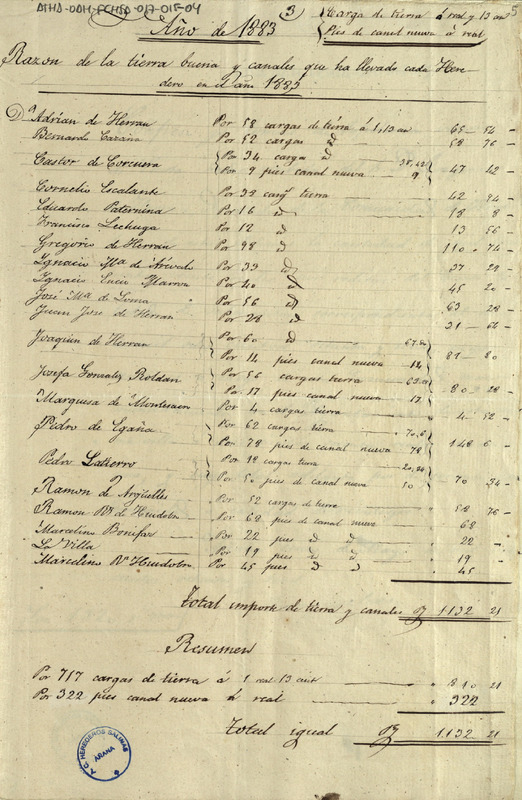 ATHA-DAH-FCHSA-017-015-04
3
5
Carga de tierra á real y 13 cen
Pies de canal nueva á real
Año de 1883
Razon de la tierra buena y canales que ha llevado cada Here
dero en el año 1883
Dn Adrian de Herran Por 58 cargas de tierra á 1,13 cen 65 54
Bernardo Por 52 cargas id 58 76
Castor de Corcuera Por 34 cargas id 38,42
Por 9 pies canal nueva 9 47 42
Cornelio Escalante Por 38 cargs tierra 42 94
Eduardo Paternina Por 16 id 18 8
Francisco Lechuga Por 12 id 13 56
Gregorio de Herran Por 98 id 110 74
Ignacio Ma de Por 33 id 37 29
Ignacio Por 40 id 45 20
José Ma de Por 56 id 63 28
Juan José de Herran Por 28 id 31 64
Joaquin de Herran Por 60 id 67.80
Por 14 pies canal nueva 14 81 80
Josefa Gonzalez Roldan Por 56 cargas tierra 63.28
Por 17 pies canal nueva 17 80 28
Marquesa de Montesaen Por 4 cargas tierra 4 52
Pedro de Egaña Por 62 cargas tierra 70,6
Por 78 pies de canal nueva 78 148 6
Pedro Latierro Por 18 cargas tierra 20,34
Por 50 pies de canal nueva 50 70 34
Ramon de Argüelles Por 52 cargas de tierra 58 76
Ramon Ma de Huidobro Por 68 pies de canal nueva 68
Marcelino Bonifaz Por 22 pies id id 22
La Villa Por 19 pies id id 19
Marcelino Ra Huidobro Por 45 pies id id 45
Total importe de tierra y canales 1132 21
Resumen
Por 717 cargas de tierra á 1 real 13 cent 810 21
Por 322 pies canal nueva á real 322
Total igual 1132 21
A.C. HEREDEROS SALINAS
AÑANA